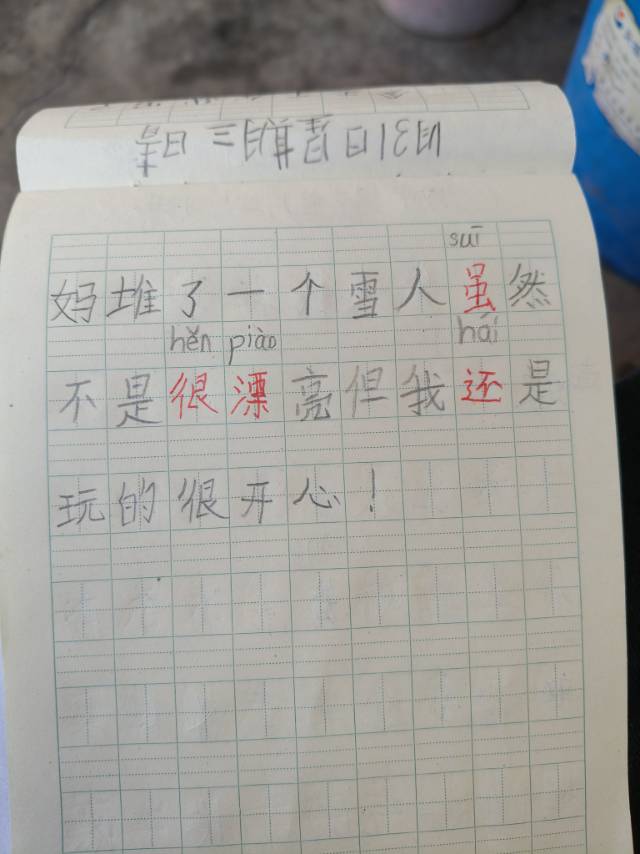 1月31日 星期三 晴
suī
妈堆了一个雪人虽然
hěn piào hái
不是很漂亮但我还是
玩的很开心！